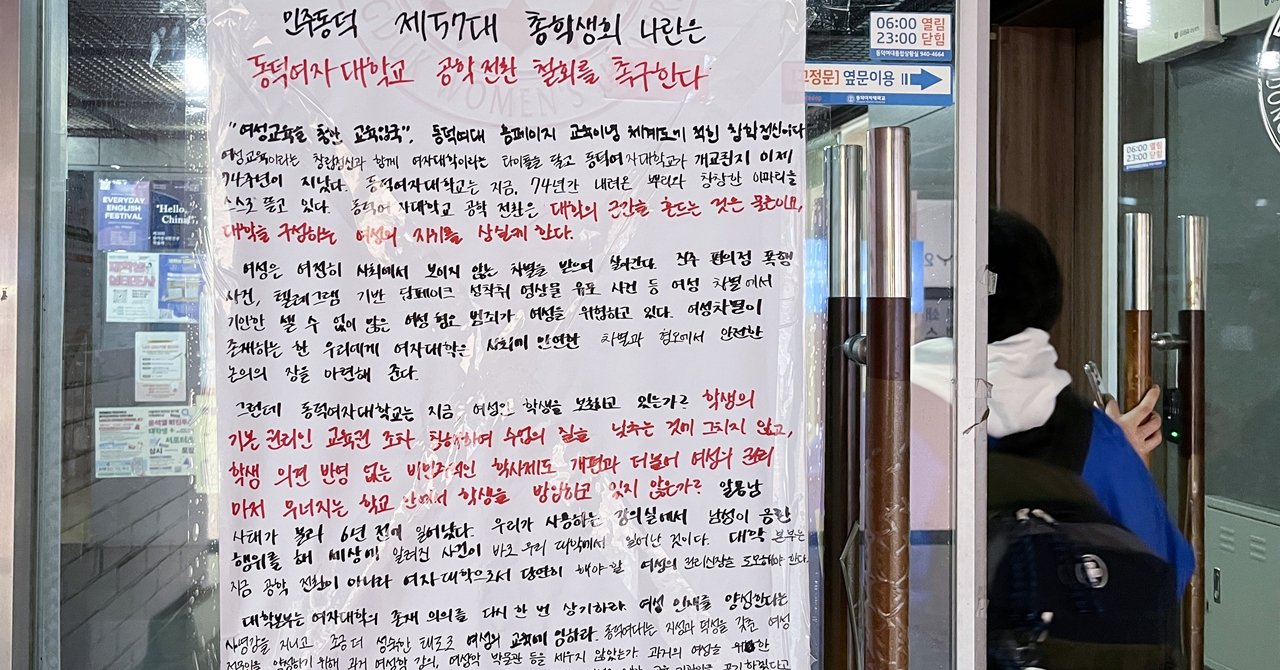 민주동덕 제57대 총학생회 나란은
동덕여자대학교 공학 전환 철회를 촉구한다
"여성교육을 통한 교육입국", 동덕여대 홈페이지 교육이념 체계도에 적힌 창학정신이다
여성교육이라는 창립정신과 함께 여자대학이라는 타이틀을 달고 동덕여자대학교가 개교한지 이제
74주년이 지났다. 동덕여자대학교는 지금, 74년간 내려온 뿌리와 창창한 이파리를
스스로 뜯고 있다. 동덕여자대학교 공학 전환은 대학의 근간을 흔드는 것은 물론이요,
대학을 구성하는 여성의 지위를 상실케 한다.
여성은 여전히 사회에서 보이지 않는 차별을 받으며 살아간다. 진주 편의점 폭행
사건, 텔레그램 기반 딥페이크 성착취 영상물 유포 사건 등 여성 차별에서
기인한 셀 수 없이 많은 여성 혐오 범죄가 여성을 위협하고 있다. 여성차별이
존재하는 한 우리에게 여자대학은 사회에 만연한 차별과 혐오에서 안전한
논의의 장을 마련해 준다.
그런데 동덕여자대학교는 지금 여성인 학생을 보호하고 있는가? 학생의
기본 권리인 교육권 조차 침해하며 수업의 질을 낮추는 것에 그치지 않고,
학생 의견 반영 없는 비민주적인 학사제도 개편과 더불어 여성의 권리
마저 무너지는 학교 안에서 학생을 방임하고 있지 않은가? 알몸남
사태가 불과 6년 전에 일어났다. 우리가 사용하는 강의실에서 남성이 음란
행위를 해 세상에 알려진 사건이 바로 우리 대학에서 일어난 것이다. 대학 본부는
지금 공학 전환이 아니라 여자대학으로서 당연히 해야할 여성의 권리신장을 도모해야 한다.
대학본부는 여자대학의 존재 의의를 다시 한 번 상기하라. 여성 인재를 양성한다는
사명감을 지니고, 좀 더 성숙한 태도로 여성의 교육에 임하라. 동덕여대는 지성과 덕성을 갖춘 여성
전문인을 양성하기 위해 과거 여성학 강의, 여성학 박물관 등을 세우지 않았는가. 과거의 여성을 위한
06:00 열림
23:00 닫힘
동덕여대종합상황실 940-4664
고정문] 옆문이용
동덕여자대학교
06:00 열림
23:00 닫힘
EVERYDAY
ENGLISH
FESTIVAL
"Hello,
China"
WOMEN'S